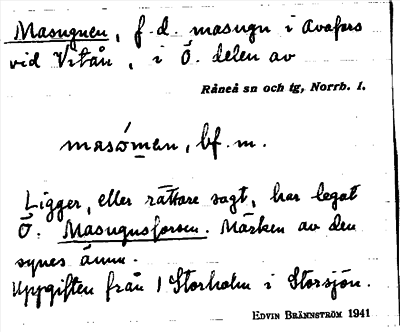 Masugnen, f.d. masugn i Avafors
vid Vitån, i Ö. delen av
Råneå sn och tg, Norrb. l.
masómen, bf. m.
Ligger, eller rättare sagt, har legat
Ö. Masugnsforsen. Märken av den
synes ännu.
Uppgiften från / Storholm i Storsjön.
Edvin Brännström 1941